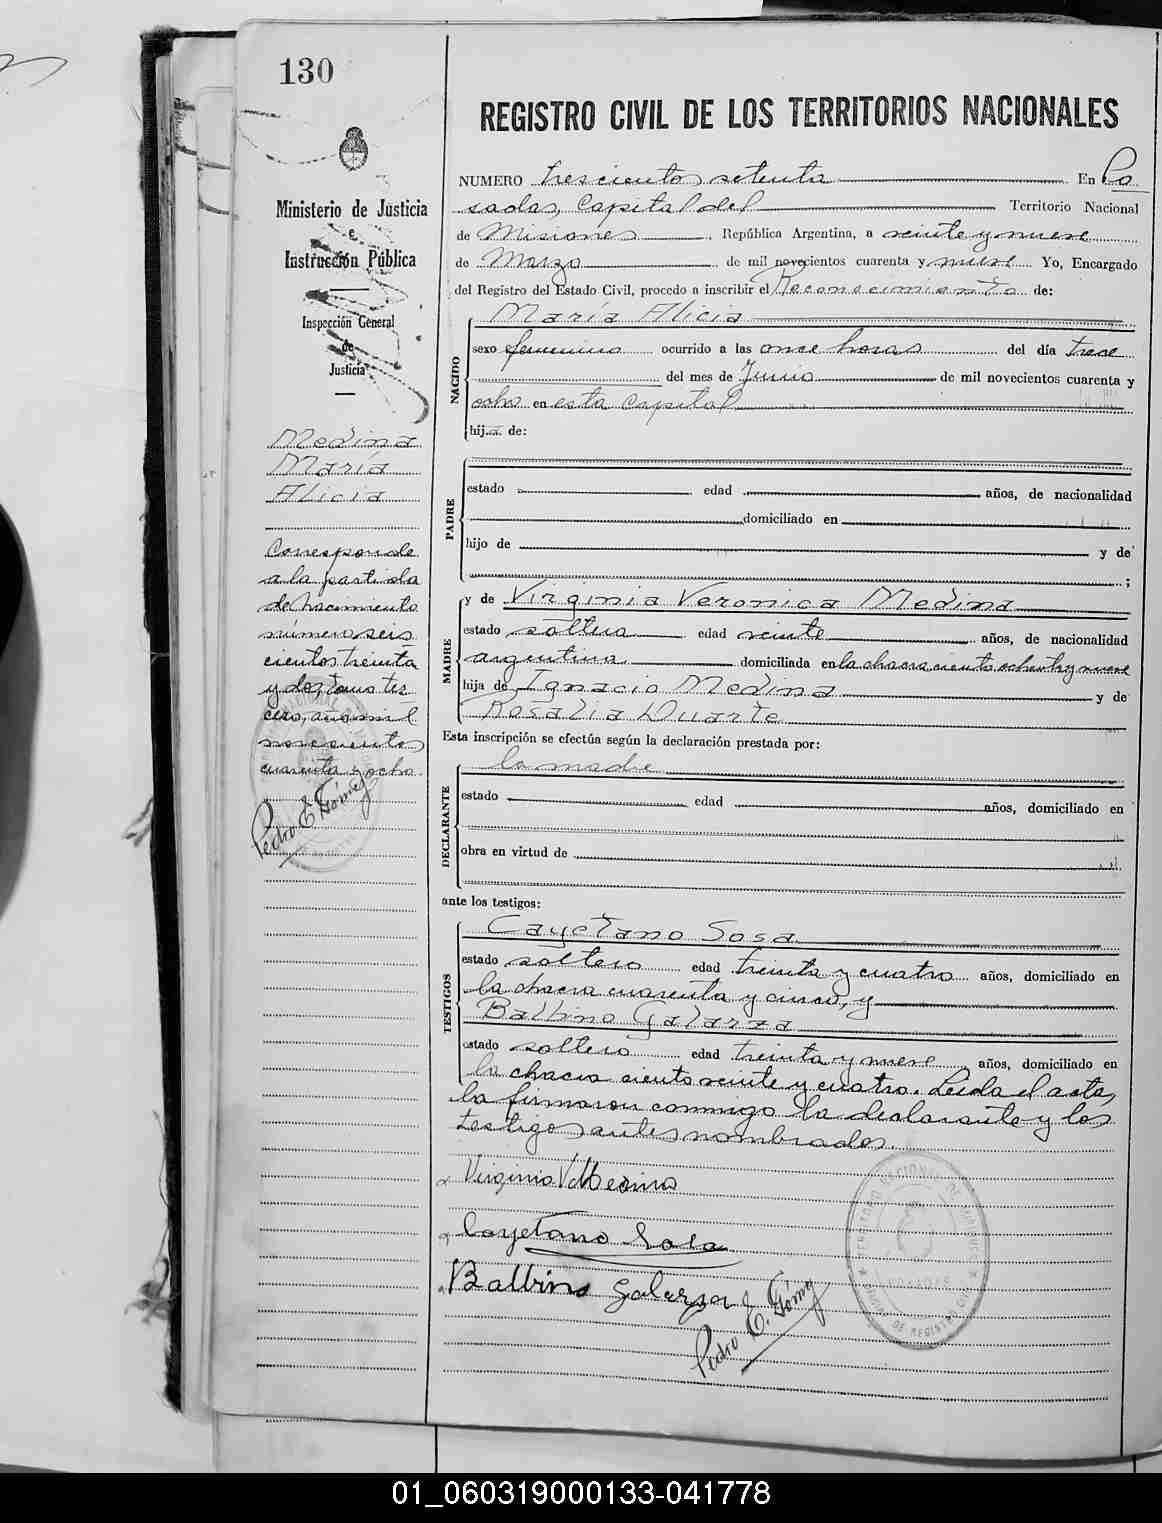 130
REGISTRO CIVIL DE LOS TERRITORIOS NACIONALES
Ministerio de Justicia
e
Instrucción Pública
Inspección General
de
Justicia
Medina
María
Alicia
Corresponde
a la partida
de nacimiento
número seis
cientos treinta
y dos, tomo ter
cero, año mil
novecientos
cuarenta y ocho.
Pedro E. Gómez
NUMERO trescientos setenta En Po
sadas, Capital del Territorio Nacional
de Misiones República Argentina, a veinte y nueve
de Marzo de mil novecientos cuarenta y nueve Yo, Encargado
del Registro del Estado Civil, procedo a inscribir el Reconocimiento de:
NACIDO
María Alicia
sexo femenino ocurrido a las once horas del día trece
del mes de Junio de mil novecientos cuarenta y
ocho en esta Capital
hija de:
PADRE
estado edad años, de nacionalidad
domiciliado en
hijo de y de
;
MADRE
y de Virginia Veronica Medina
estado soltera edad veinte años, de nacionalidad
argentina domiciliada en la chacra ciento ochenta y nueve
hija de Ignacio Medina y de
Rosalia Duarte
Esta inscripción se efectúa según la declaración prestada por:
DECLARANTE
la madre
estado edad años, domiciliado en
obra en virtud de
ante los testigos:
TESTIGOS
Cayetano Sosa
estado soltero edad treinta y cuatro años, domiciliado en
la chacra cuarenta y cinco, y
Balbino Galarza
estado soltero edad treinta y nueve años, domiciliado en
la chacra ciento veinte y cuatro. Leída el acta,
la firmaron conmigo la declarante y los
testigos antes nombrados.
Virginia V Medina
Cayetano Sosa
Balbino Galarza
Pedro E. Gómez
01_060319000133-041778